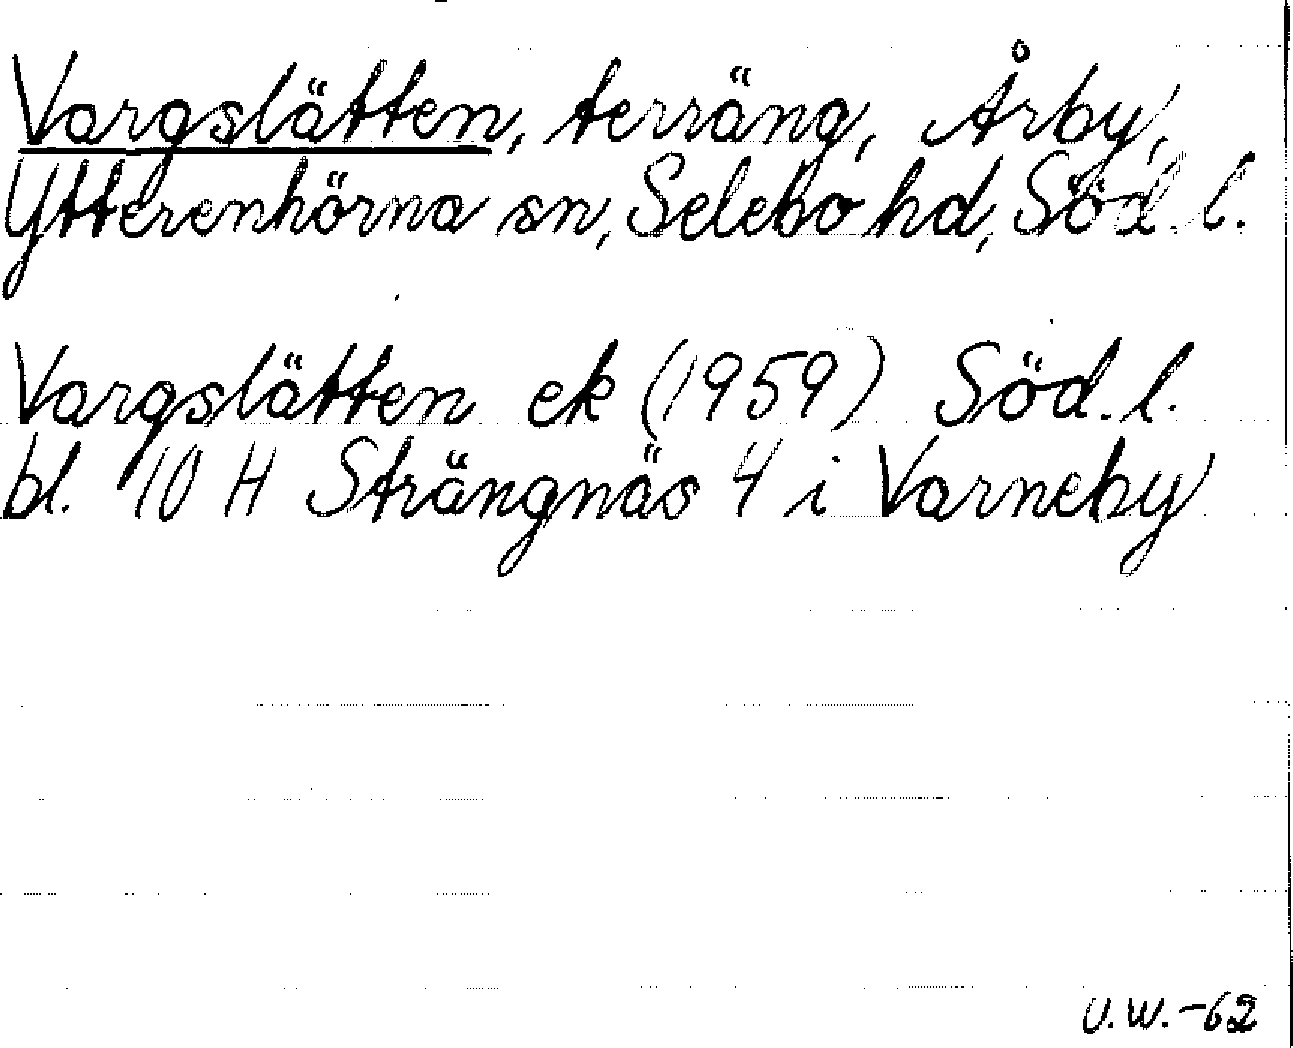 Vargslätten, terräng, Årby,
Ytterenhörna sn, Selebo hd, Söd. l.
Vargslätten ek (1959) Söd. l.
bl. 10 H Strängnäs 4 i Varneby
U.W.-62